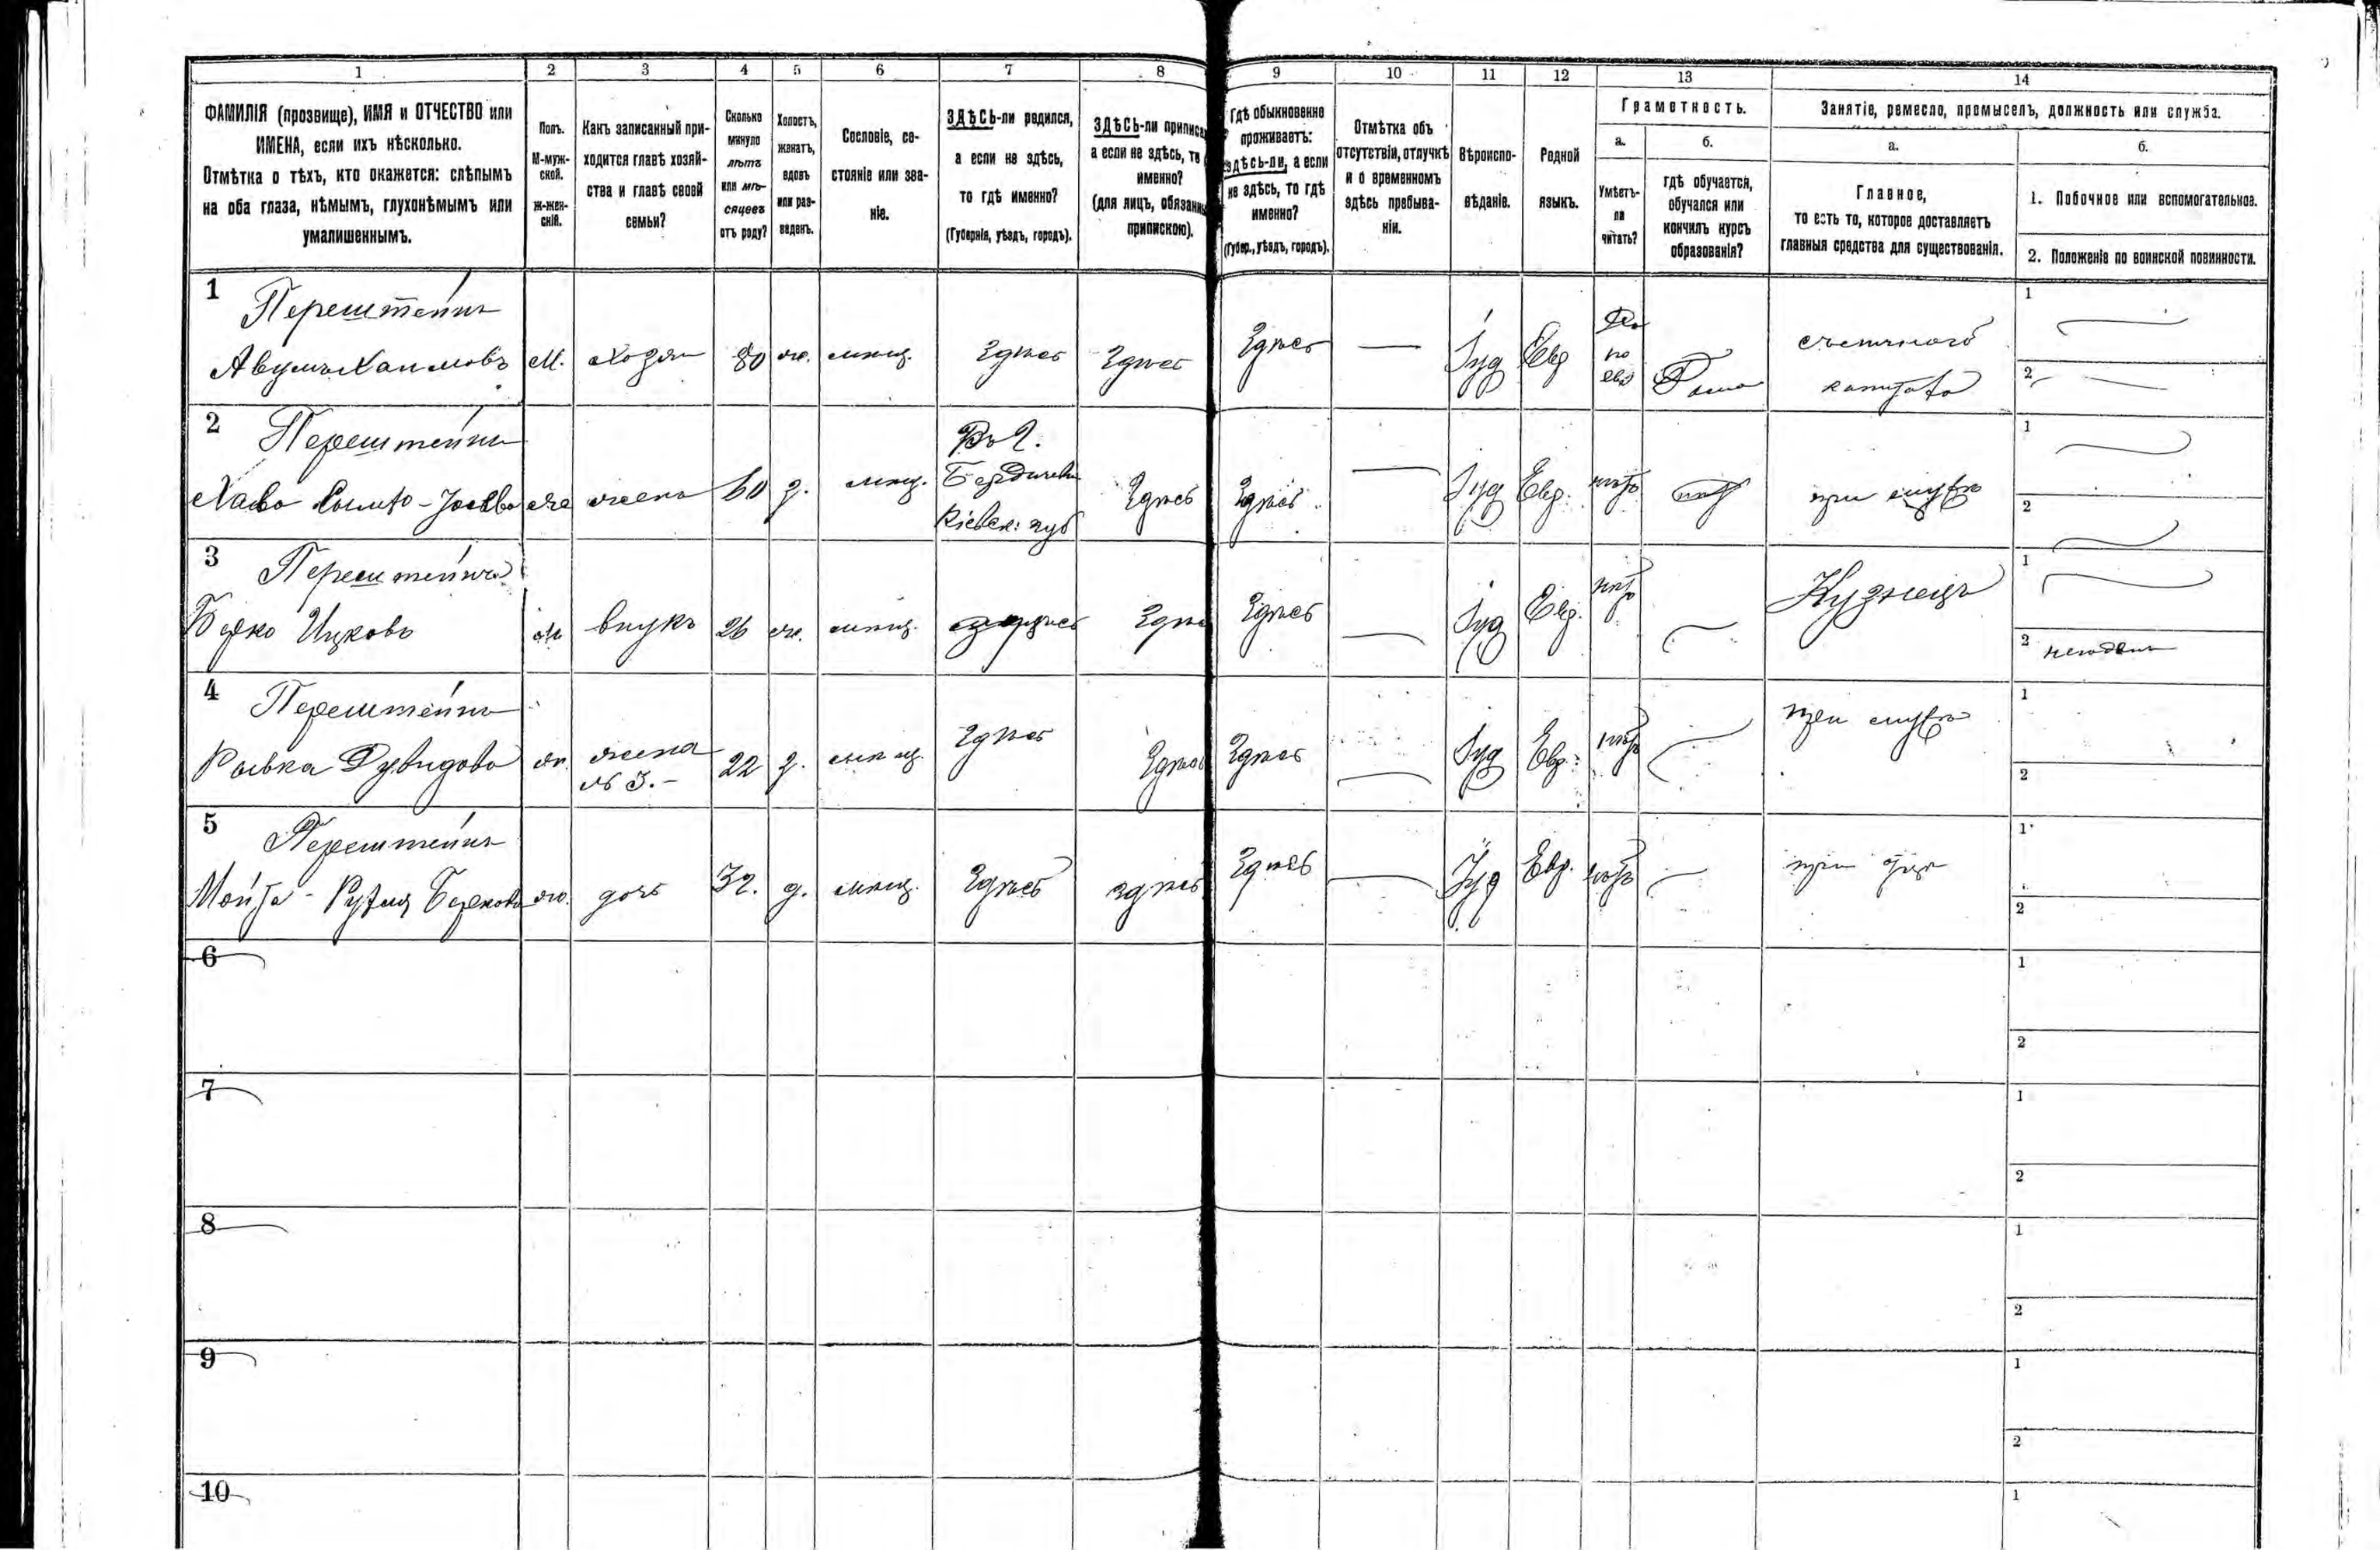 1 2 3 4 5 6 7 8 9 10 11 12 13 14
ФАМИЛІЯ (прозвище), ИМЯ и ОТЧЕСТВО или
ИМЕНА, если ихъ нѣсколько.
Отмѣтка о тѣхъ, кто окажется: слѣпымъ
на оба глаза, нѣмымъ, глухонѣмымъ или
умалишеннымъ.
Полъ.
М-муж-
ской.
ж-жен-
скій.
Какъ записанный при-
ходится главѣ хозяй-
ства и главѣ своей
семьи?
Сколько
минуло
лѣтъ
или мѣ-
сяцевъ
отъ роду?
Холостъ,
женатъ,
вдовъ
или раз-
веденъ.
Сословіе, со-
стояніе или зва-
ніе.
ЗДѢСЬ-ли родился,
а если не здѣсь,
то гдѣ именно?
(Губернія, уѣздъ, городъ).
ЗДѢСЬ-ли приписа
а если не здѣсь, то
именно?
(для лицъ, обязанн
припискою).
Гдѣ обыкновенно
проживаетъ:
здѣсь-ли, а если
не здѣсь, то гдѣ
именно?
(Губер., уѣздъ, городъ).
Отмѣтка объ
отсутствіи, отлучкѣ
и о временномъ
здѣсь пребыва-
ніи.
Вѣроиспо-
вѣданіе.
Родной
языкъ.
Грамотность.
а.
Умѣетъ-
ли
читать?
б.
гдѣ обучается,
обучался или
кончилъ курсъ
образованія?
Занятіе, ремесло, промыселъ, должность или служба.
а.
Главное,
то есть то, которое доставляетъ
главныя средства для существованія.
б.
1. Побочное или вспомогательное.
2. Положеніе по воинской повинности.
1 Перештейнъ
Хаимовъ М. хозяин 80 ж. мѣщ. Здѣсь Здѣсь Здѣсь — Іуд Евр Да по евр Дома
1
2
2 Перештейнъ
Хава - жена 60 з. мѣщ. Въ г. Бердичевѣ Кіевск: губ Здѣсь Здѣсь — Іуд Евр. нѣтъ нѣтъ при мужѣ
1
2
3 Перештейнъ
Берко Ицковъ м внукъ 26 ж. мѣщ. Здѣсь Здѣсь Іуд Евр. нѣтъ Кузнецъ
1
2
4 Перештейнъ
Ривка Дувидова ж. жена № 3.- 22 з. мѣщ. Здѣсь Здѣсь Здѣсь Іуд Евр. нѣтъ при мужѣ
1
2
5 Перештейнъ
Берковъ ж. дочь д. мѣщ. Здѣсь здѣсь Здѣсь Іуд Евр. нѣтъ при
1
2
6
1
2
7
1
2
8
1
2
9
1
2
10
1